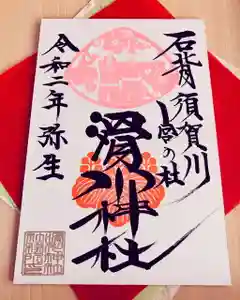 石背須賀川
一宮の社
滑川神社
令和二年弥生